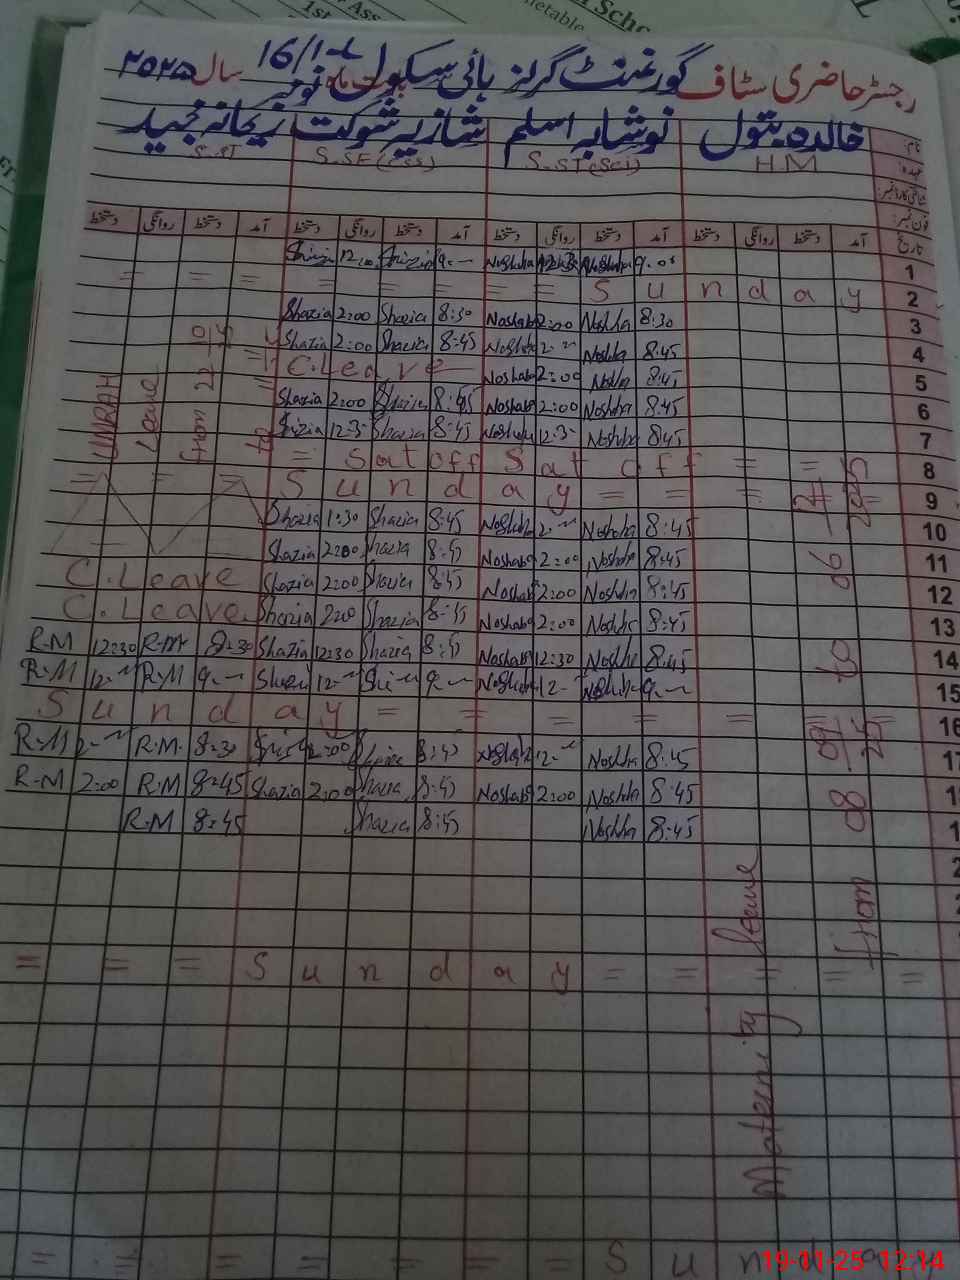 رجسٹر حاضری سٹاف گورنمنٹ گرلز ہائی سکول 16/1-L بابت ماہ نومبر سال ۲۰۲۵
نام: خالدہ بتول نوشابہ اسلم شازیہ شوکت ریحانہ مجید
عہدہ: H.M S.ST(Sci) S.SE(ess) S.ST
شناختی کارڈ نمبر:
فون نمبر:
تاریخ آمد دستخط روانگی دستخط آمد دستخط روانگی دستخط آمد دستخط روانگی دستخط آمد دستخط روانگی دستخط
Shazia 12:00 Shazia 9:— Noshaba Noshaba 9.00 1
= = = = = = = S u n d a y 2
Shazia 2:00 Shazia 8:30 Noshaba 2:00 Noshba 8:30 3
Shazia 2:00 Shazia 8:45 Noshaba 2:— Noshba 8:45 4
C.Leave Noshaba 2:00 Noshba 8:45 5
Shazia 2:00 Shazia 8:45 Noshaba 2:00 Noshba 8:45 6
Shazia 12:3 Shazia 8:45 Noshaba 12:3 Noshba 8:45 7
= Sat off Sat off = = 8
= = = S u n d a y = = = = = 9
Shazia 1:30 Shazia 8:45 Noshaba 2:— Noshba 8:45 10
Shazia 2:00 Shazia 8:45 Noshaba 2:00 Noshba 8:45 11
C.Leave Shazia 2:00 Shazia 8:45 Noshaba 2:00 Noshba 8:45 12
C.Leave Shazia 2:00 Shazia 8:45 Noshaba 2:00 Noshba 8:45 13
R.M 12:30 R.M 8:30 Shazia 12:30 Shazia 8:45 Noshaba 12:30 Noshba 8:45 14
R.M 12:— R.M 9:— Shazia 12:— Shazia 9:— Noshaba 12:— Noshba 9:— 15
S u n d a y = = = = = 16
R.M 2:— R.M. 8:30 Shazia 2:00 Shazia 8:45 Noshaba 12:— Noshba 8:45 17
R-M 2:00 R.M 8:45 Shazia 2:00 Shazia 8:45 Noshaba 2:00 Noshba 8:45
R.M 8:45 Shazia 8:45 Noshba 8:45
= = = S u n d a y = = = = =
= = = = = = = S u n d a y
UMRAH
Leave
from 22-10
to
Maternity leave
from 08-09-25 to 06
19-11-25 12:14